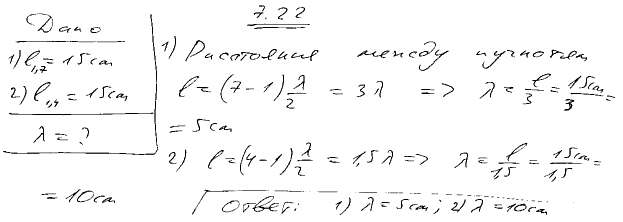 7.22
Дано
1) l₁,₇ = 15см
2) l₁,₄ = 15см
λ = ?
1) Расстояние между пучностям
l = (7-1) λ/2 = 3λ => λ = l/3 = 15см/3 =
= 5см
2) l = (4-1) λ/2 = 1,5λ => λ = l/1,5 = 15см/1,5 =
= 10см
Ответ: 1) λ = 5см; 2) λ = 10см